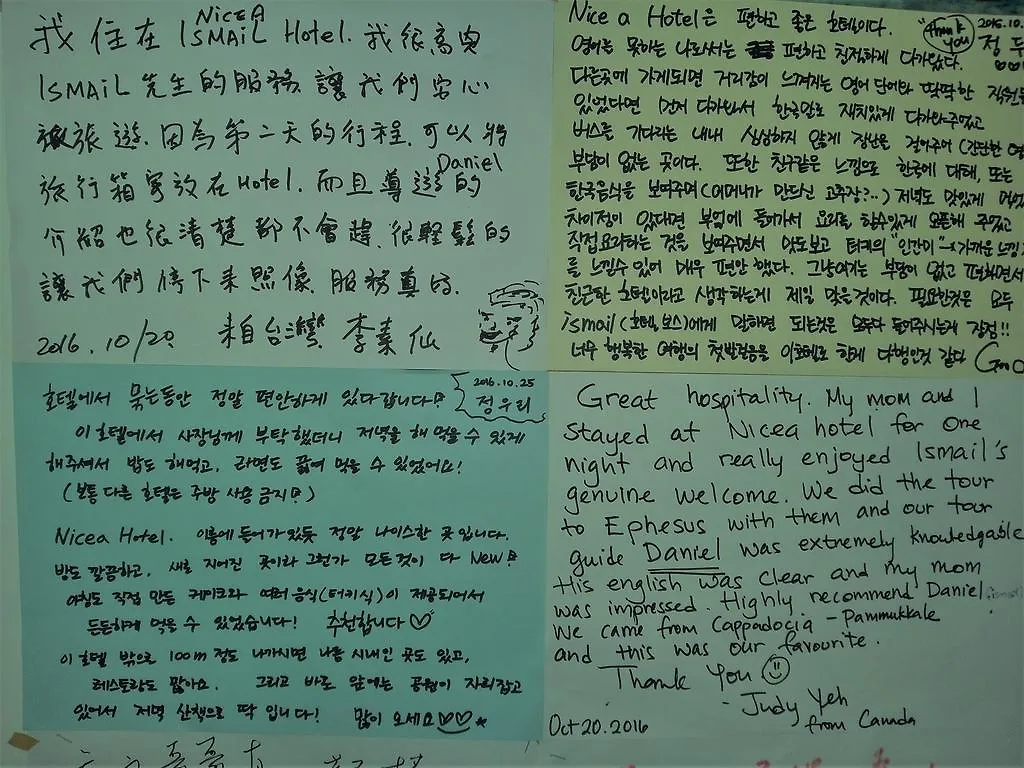 我住在 NiCEA ISMAiL Hotel. 我很高興
ISMAiL 先生的服務 讓我們安心
旅遊. 因為第二天的行程. 可以將
旅行箱寄放在Hotel. 而且導遊 Daniel 的
介紹也很清楚都不會趕、很輕鬆的
讓我們停下來照像. 服務真的.
2016.10/20 來自台灣 李 仙
Nice a Hotel은 편하고 좋은 호텔이다.
"thank you"
2016.10.
정 우
영어를 못하는 나로서는 편하고 친절하게 다가왔다.
다른곳에 가게되면 거리감이 느껴지는 영어 단어와 딱딱한 직원
있었다면 먼저 다가와서 한국말로 재치있게 다가와주었고
버스를 기다리는 내내 심심하지 않게 장난을 걸어주어 (간단한 영
부담이 없는 곳이다. 또한 친구같은 느낌으로 한국에 대해, 또는
한국음식을 보여주며 (어머니가 만드신 고추장?..) 저녁도 맛있게
차이점이 있다면 부엌에 들어가서 요리를 할수있게 오픈해 주었고
직접요리하는 것을 보여주면서 맛도보고 터키의 "인간미"
를 느낄수 있어 매우 편안 했다. 그냥여기는 부담이 없고 편하면서
친근한 호텔이라고 생각하는게 제일 맞을것이다. 필요한것은 모두
ismail (호텔 보스)에게 말하면 되는것은 모두다 들어주시는게 장점!!
너무 행복한 여행의 첫발걸음을 이호텔로 한게 다행인것 같다
호텔에서 묵는동안 정말 편안하게 있다갑니다!
2016.10.25
정우리
이 호텔에서 사장님께 부탁했더니 저녁을 해 먹을 수 있게
해주셔서 밥도 해먹고, 라면도 끓여 먹을 수 있었어요!
(보통 다른 호텔은 주방 사용 금지!)
Nicea Hotel. 이름에 들어가있듯 정말 나이스한 곳입니다.
방도 깔끔하고, 새로 지어진 곳이라 그런가 모든것이 다 New!
아침도 직접 만든 케이크와 여러 음식(터키식)이 제공되어서
든든하게 먹을 수 있었습니다! 추천합니다♡
이 호텔 밖으로 100m 정도 나가시면 나름 시내인 곳도 있고,
레스토랑도 많아요. 그리고 바로 앞에는 공원이 자리잡고
있어서 저녁 산책으로 딱 입니다! 많이 오세요♡♡★
Great hospitality. My mom and I
stayed at Nicea hotel for one
night and really enjoyed Ismail's
genuine welcome. We did the tour
to Ephesus with them and our tour
guide Daniel was extremely knowledgable
His english was clear and my mom
was impressed. Highly recommend Daniel
We came from Cappadocia - Pammukkale
and this was our favourite.
Thank You ☺
- Judy Yeh
from Canada
Oct 20.2016